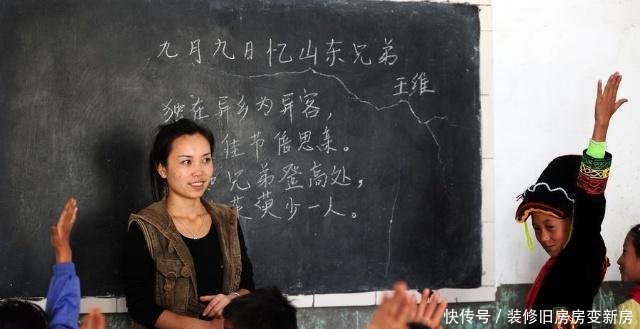 九月九日忆山东兄弟
王维
独在异乡为异客，
佳节倍思亲。
兄弟登高处，
萸少一人。
快传号/装修旧房房变新房